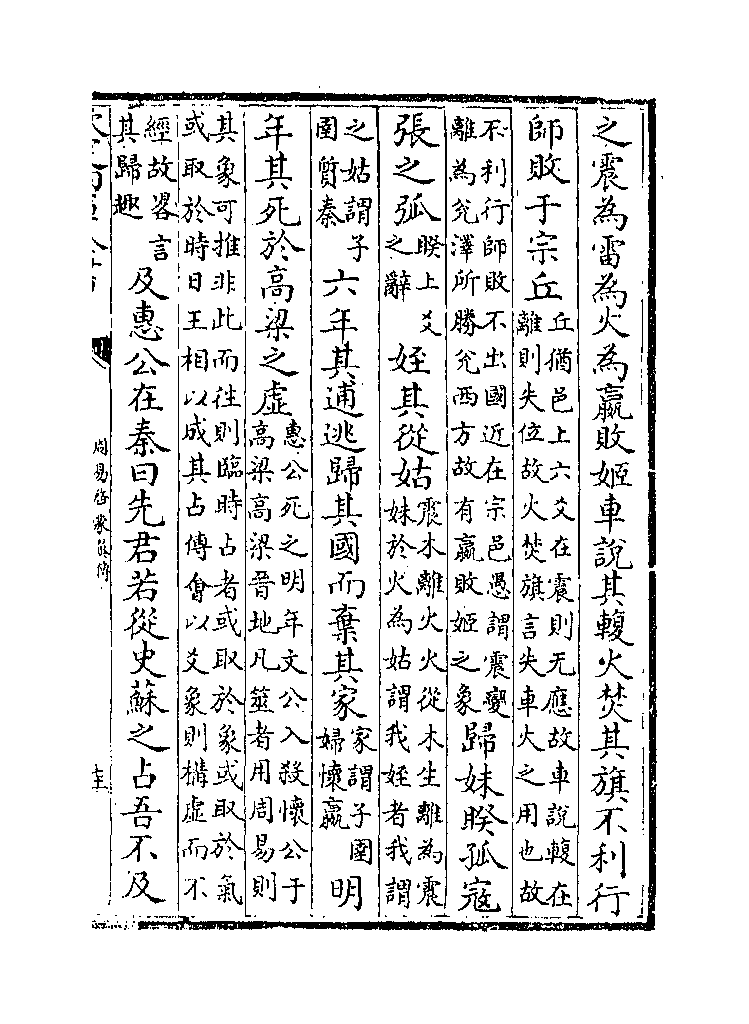 之震為雷為火為嬴敗姬車說其輹火焚其旗不利行
師敗于宗丘丘猶邑上六爻在震則无應故車說輹在
離則失位故火焚旗言失車火之用也故
不利行師敗不出國近在宗邑愚謂震變
離為兊澤所勝兊西方故有嬴敗姬之象歸妹睽孤寇
張之弧睽上爻
之辭姪其從姑震木離火火從木生離為震
妹於火為姑謂我姪者我謂
之姑謂子
圉質秦六年其逋逃歸其國而棄其家家謂子圉
婦懷嬴明
年其死於高梁之虛惠公死之明年文公入殺懷公于
高梁高梁晉地凡筮者用周易則
其象可推非此而往則臨時占者或取於象或取於氣
或取於時日王相以成其占傅會以爻象則構虛而不
經故畧言
其歸趣及惠公在秦曰先君若從史蘇之占吾不及
周易啓蒙翼傳